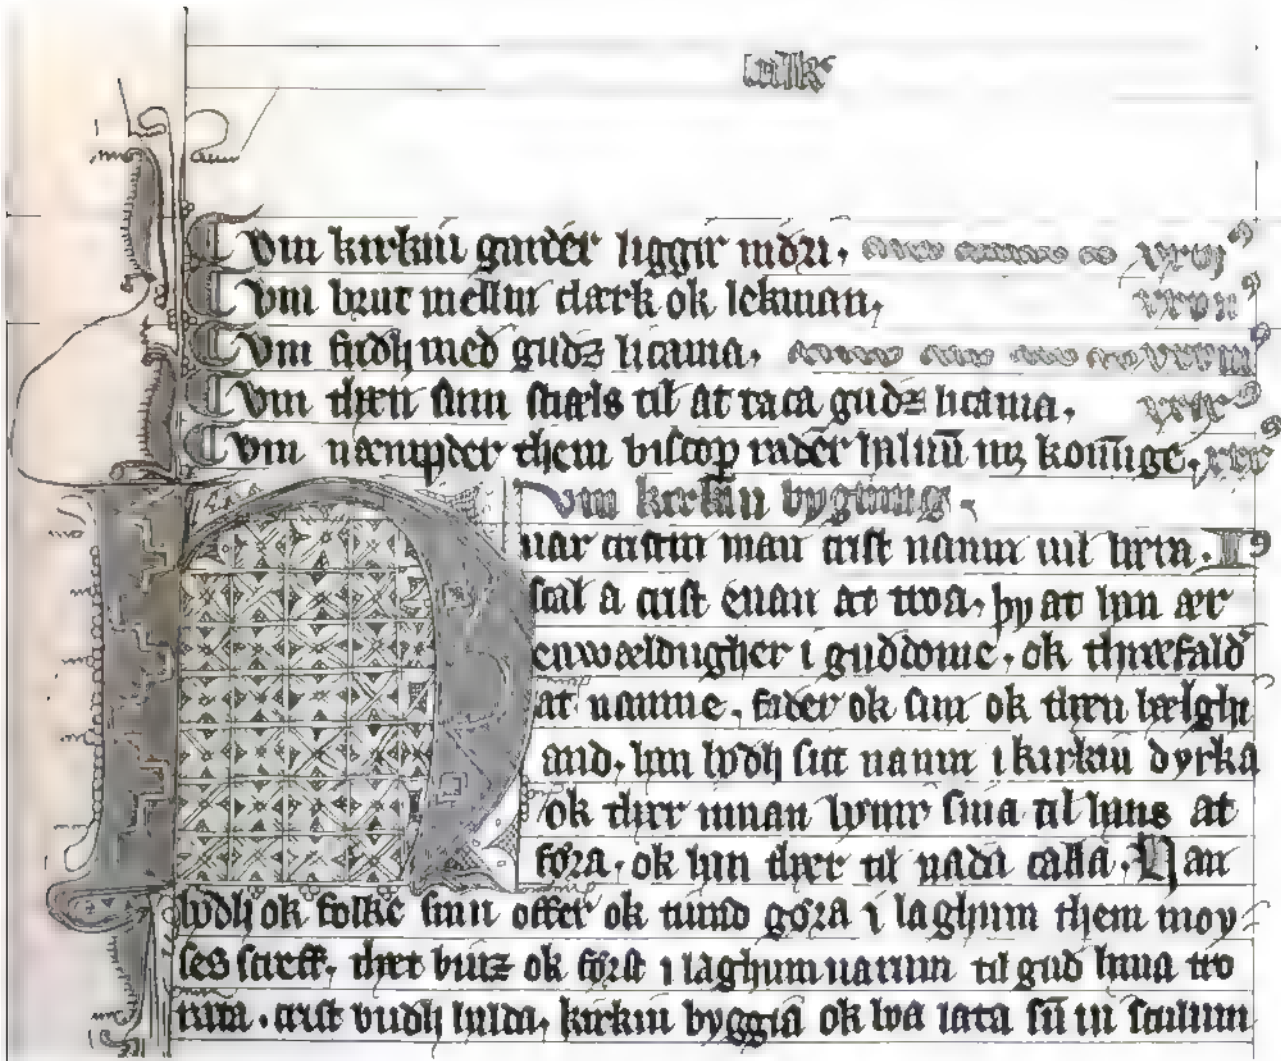 balk
Vm kirkiu garder liggir nidri. xxvi⁹
Vm brut mellin clærk ok lekman, xxvii⁹
Vm færdh med gudz licama. xxviii⁹
Vm then sinn stæls til at taca gudz licama, xxix⁹
Vm næmpder them biscop rader mʒ konūge, xxx⁹
Vm kirkiu bygning,
uar cristin man crist nampn uil hæra. I
scal a crist enan at troa, þy at han ær
enwældugher i guddome, ok thræfald
at nampne, fader ok sun ok then hælghi
and, han bødh sitt nampn i kirkiu dyrka
ok ther innan bønir sina til hans at
føra, ok han ther til nada calla. Han
bødh ok folke sinu offer ok tiund gøra i laghum them moy
ses screff, thet biuz ok først i laghum uarum til gud hava tro
rætta. crist budh halda, kirkiu byggia ok lata sū ui sculum